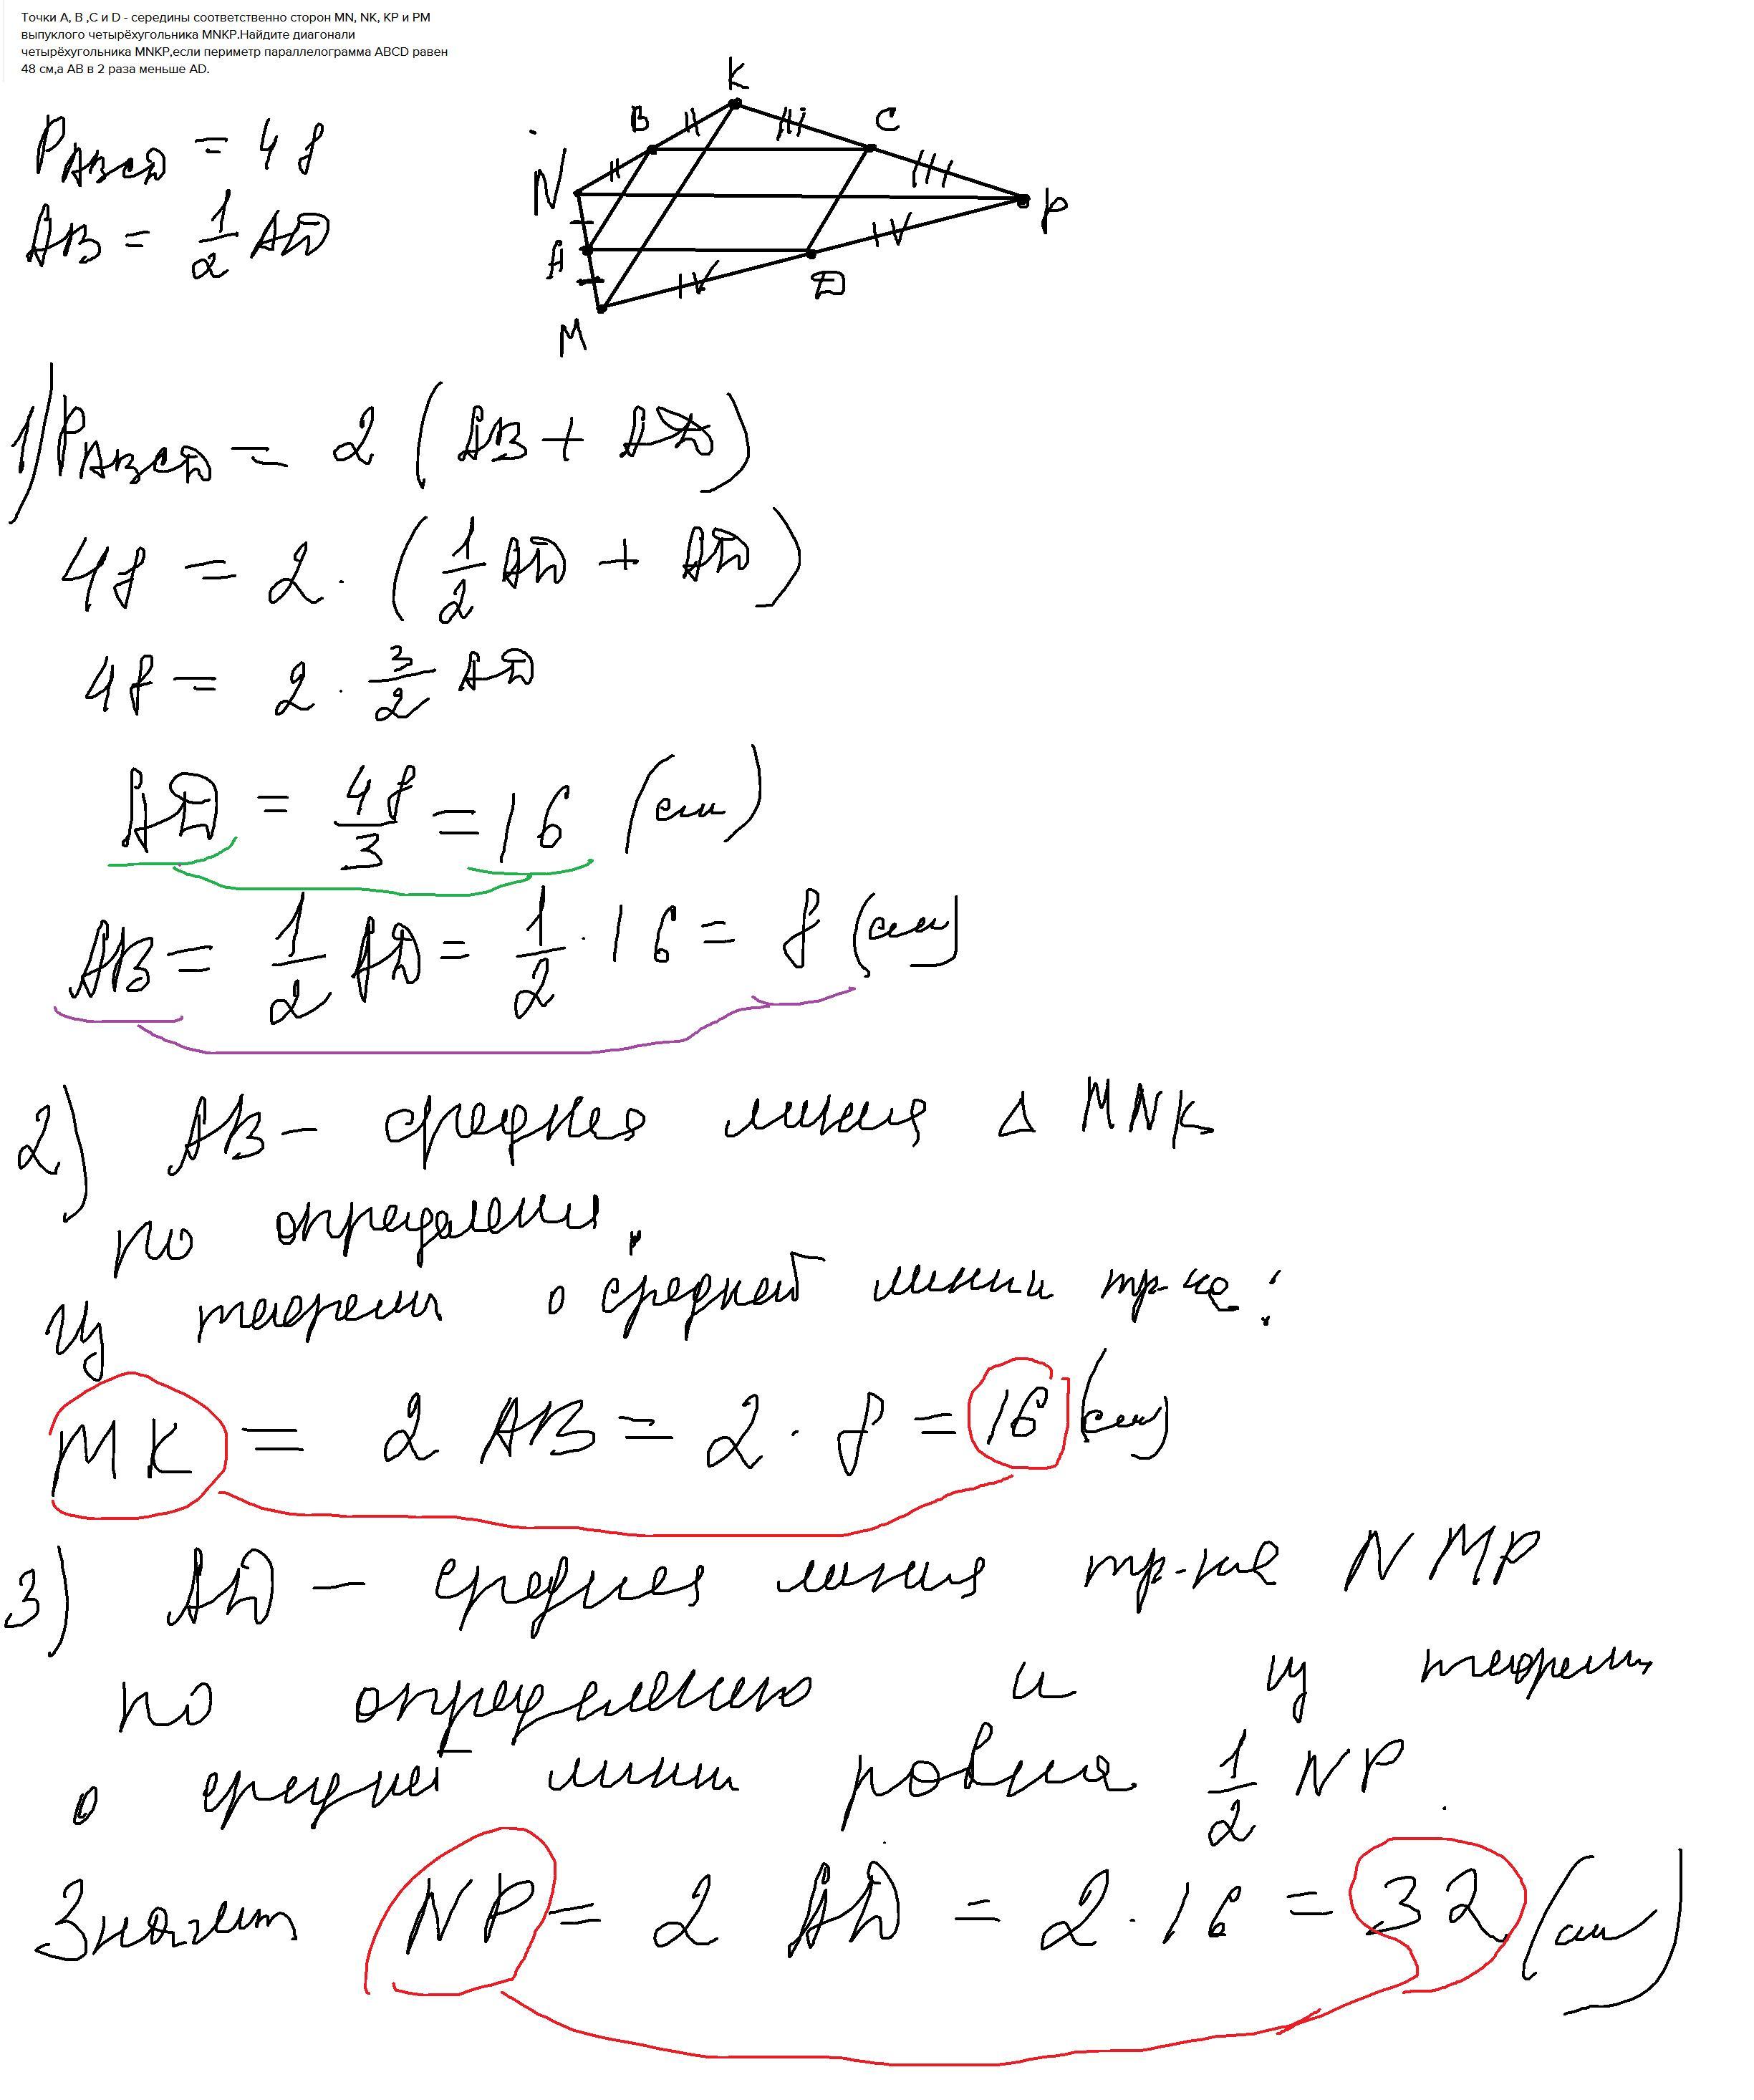 Точки A, B ,C и D - середины соответственно сторон MN, NK, KP и PM
выпуклого четырёхугольника MNKP.Найдите диагонали
четырёхугольника MNKP,если периметр параллелограмма ABCD равен
48 см,а AB в 2 раза меньше AD.
P_ABCD = 48
AB = 1/2 AD
K
B
C
N
P
A
D
M
II
II
III
III
IV
IV
1) P_ABCD = 2 (AB + AD)
48 = 2 · (1/2 AD + AD)
48 = 2 · 3/2 AD
AD = 48/3 = 16 (см)
AB = 1/2 AD = 1/2 · 16 = 8 (см)
2) AB - средняя линия △ MNK
по определени.
Из теоремы о средней линии тр-ка:
MK = 2 AB = 2 · 8 = 16 (см)
3) AD - средняя линия тр-ка NMP
по определению и из теоремы
о средней линии равна 1/2 NP.
Значит NP = 2 AD = 2 · 16 = 32 (см)